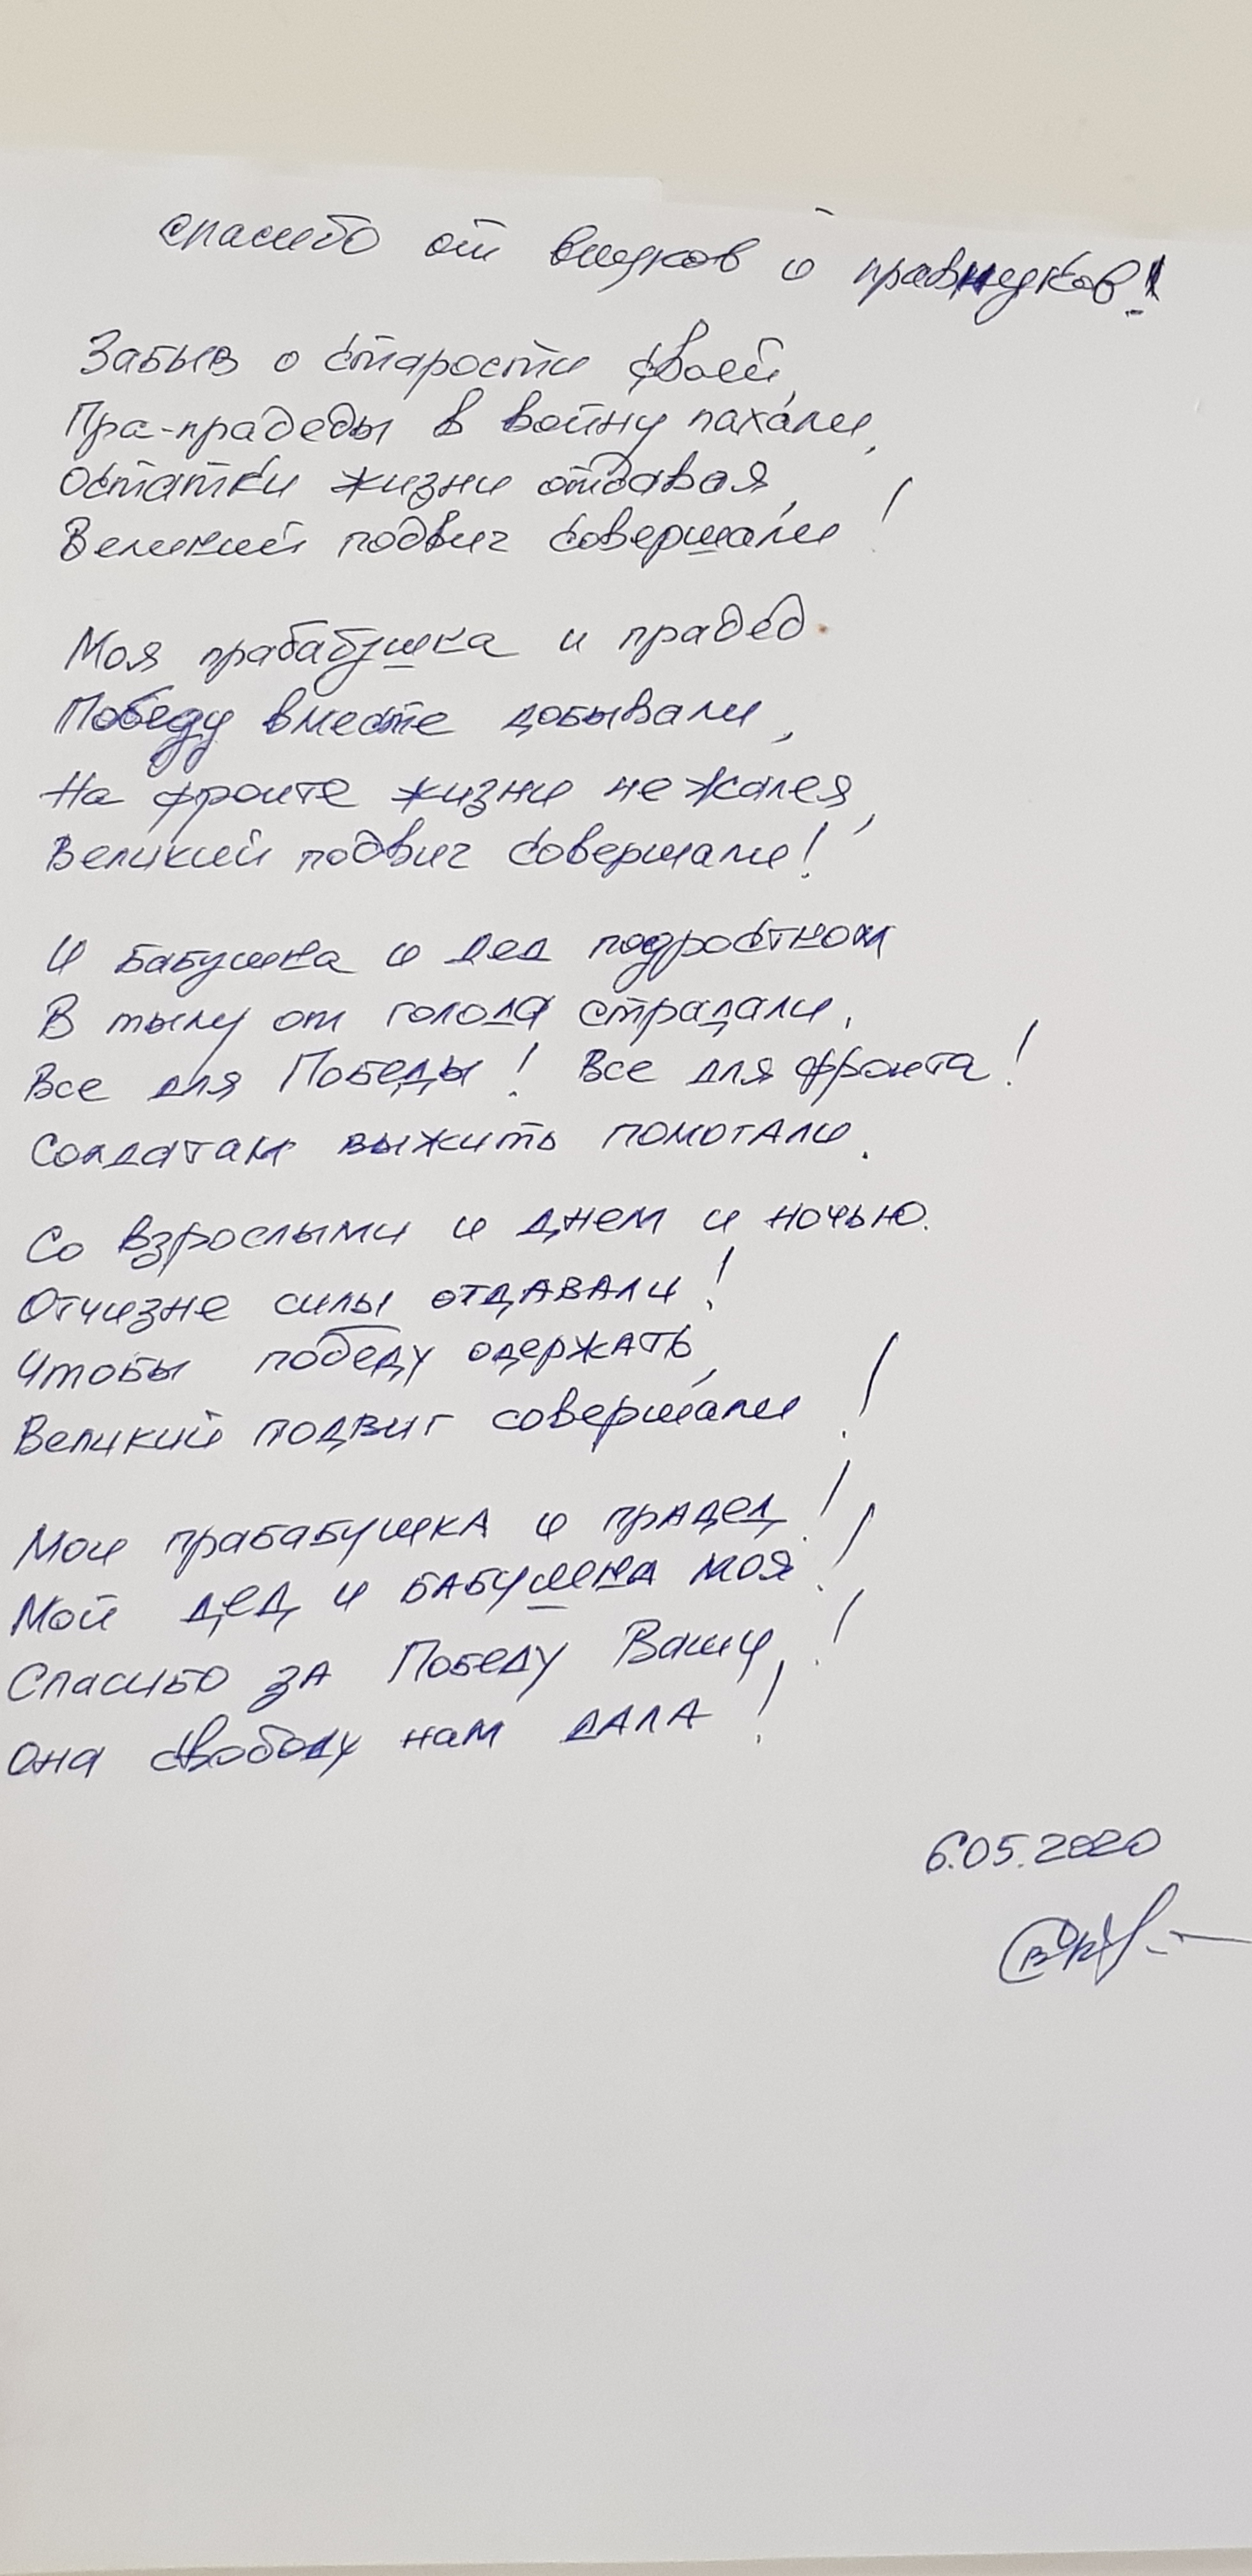 Спасибо от внуков и правнуков!
Забыв о старости своей,
Пра-прадеды в войну пахали,
Остатки жизни отдавая,
Великий подвиг совершали!
Моя прабабушка и прадед
Победу вместе добывали,
На фронте жизни не жалея,
Великий подвиг совершали!
И бабушка и дед подростком
В тылу от голода страдали,
Все для Победы! Все для фронта!
Солдатам выжить помогали.
Со взрослыми и днем и ночью.
Отчизне силы отдавали!
Чтобы победу одержать,
Великий подвиг совершали!
Мои прабабушка и прадед!
Мой дед и бабушка моя!
Спасибо за Победу Вашу!
Она свободу нам дала!
6.05.2020